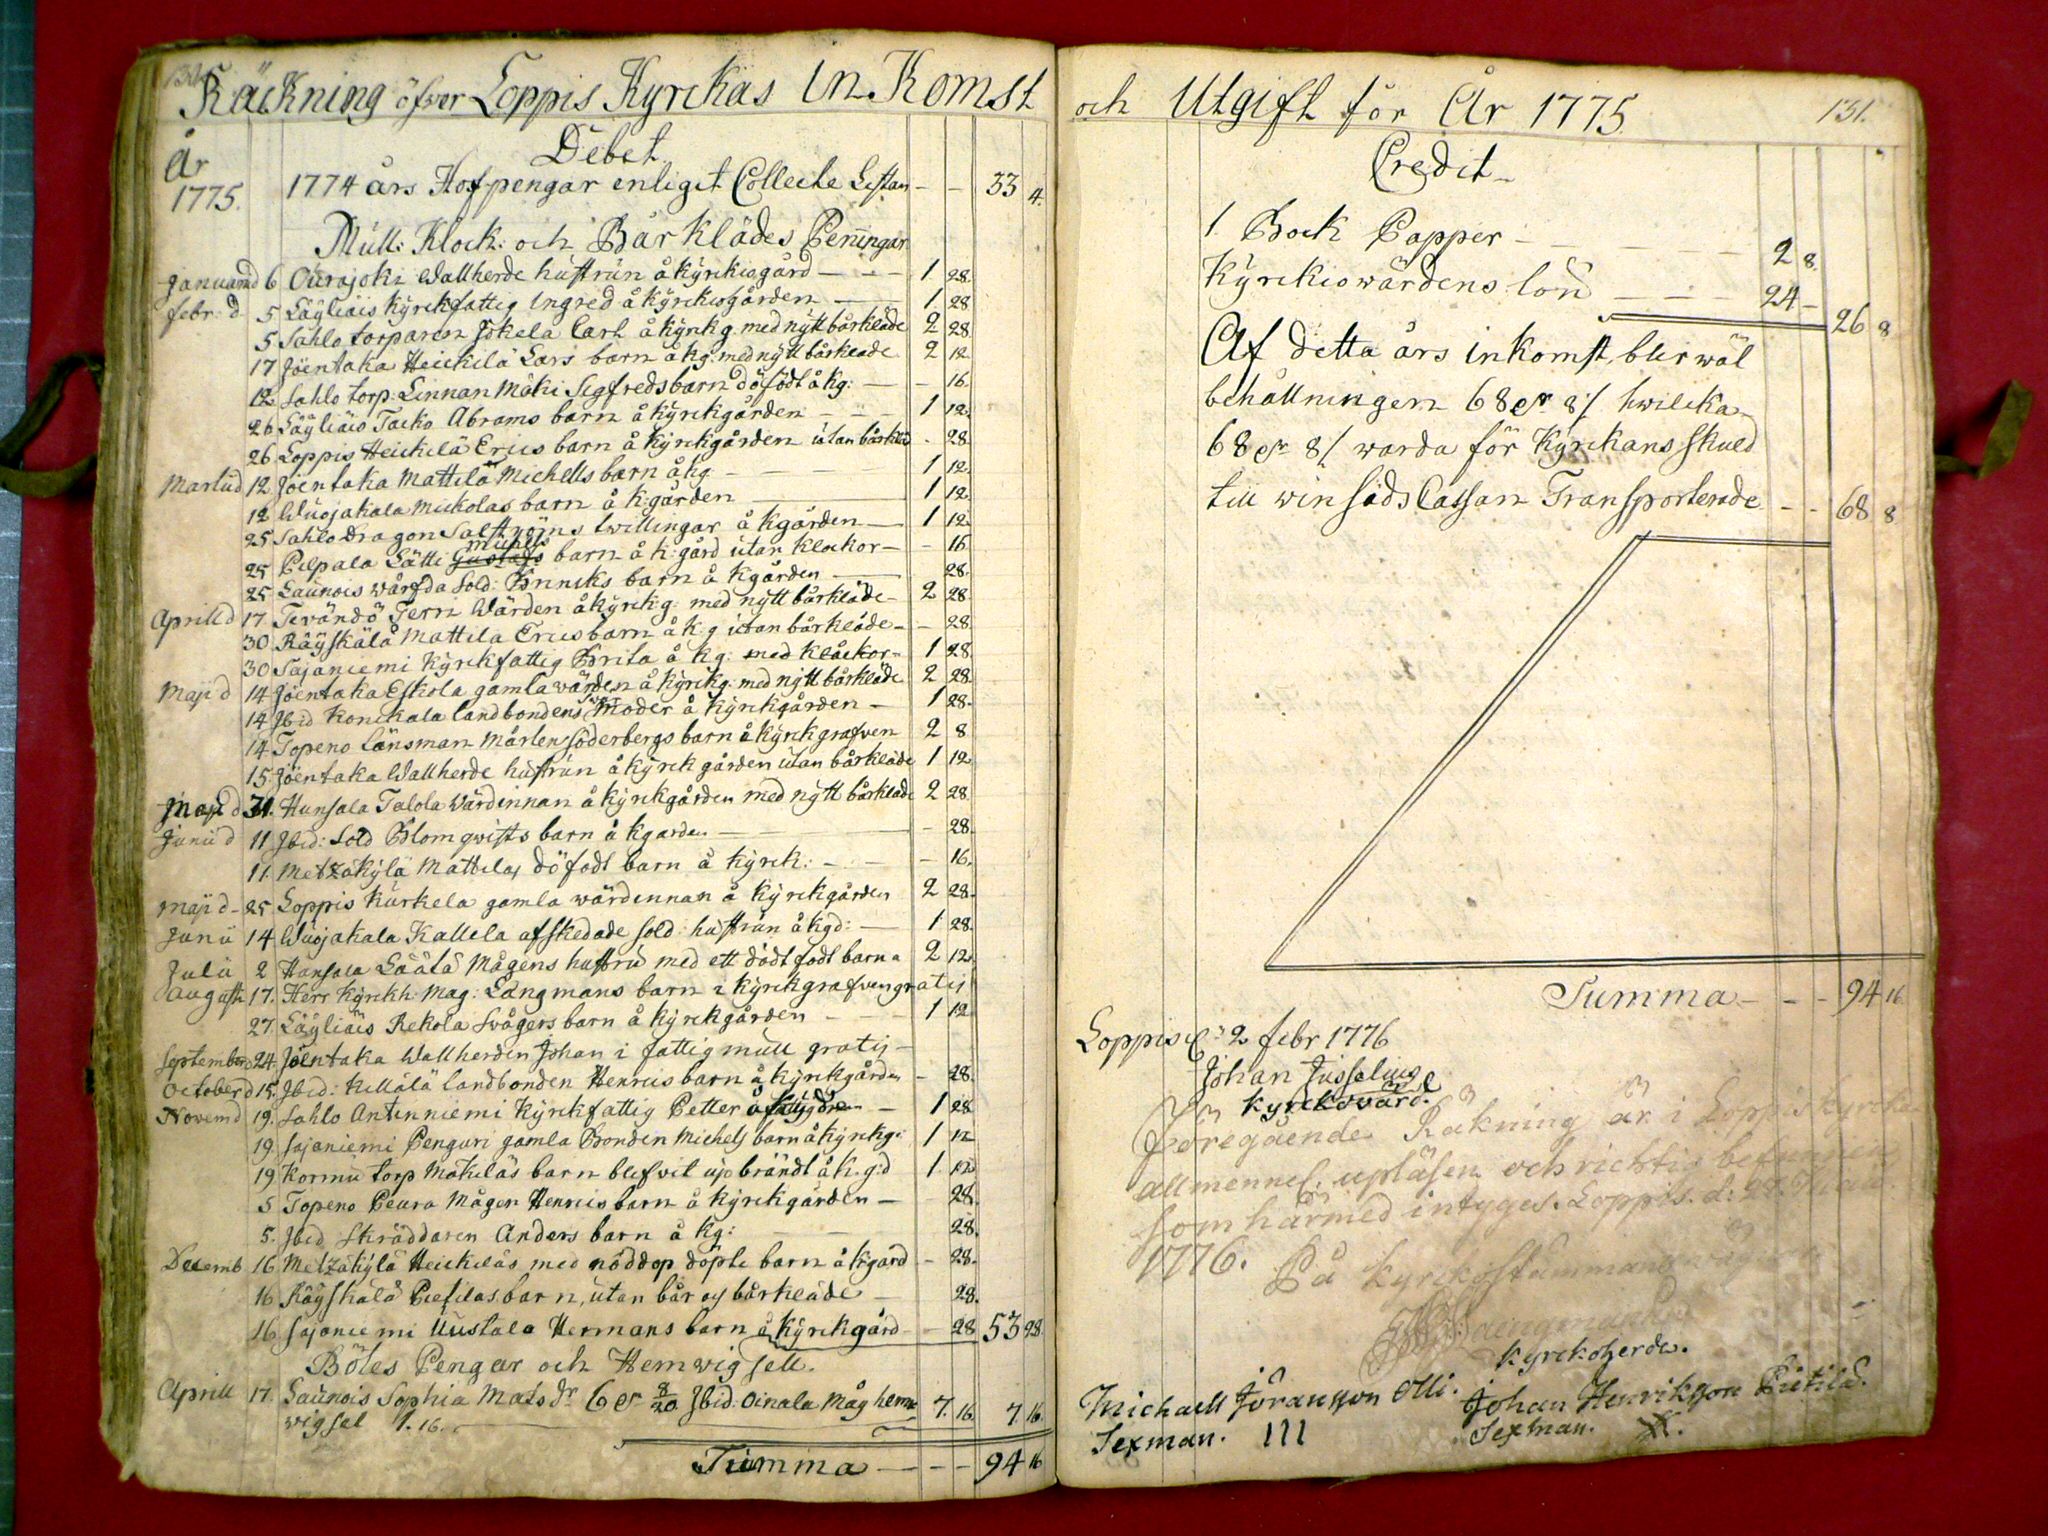 130
Räckning öfwer Loppis Kyrckas InKomst
År
1775.
Debet
1774 års Hofpengar enligit Collecte Listan - - 33 4.
Mull: Klock: och Bårklädes Peningar
Januarii d 6 Ourajoki Wallherde hustrun å kyrkiogård - - - 1 28.
febr: d 5 Läyliäis Kyrckfattig Ingred å kyrckiogården - 1. 28
5 Sahlo torparen Jokela Carl å kyrckg. med nÿtt bårkläde 2 28.
17 Jöentaka Heickilä Lars barn å kg: med nÿtt bårkläde 2 12.
12. Sahlo torp: Linnan Mäki Sigfreds barn döfödt å kg: - - 16.
26 Läyliäis Tacko Abrams barn å kyrckgården - - - 1 12.
26 Loppis Heickilä Erics barn å kyrckgården utan bårkläd - 28.
Martii d 12 Jöentaka Mattila Michells barn å kg - - - 1 12.
12 Wuojakala Mickolas barn å k:gården - 1 12.
25 Sahlo dragon twillingar å kgården - 1 12.
25 Pilpala Lätti Gustafs Michels barn å k:gård utan klockor - - 16
25 Launois wårfda Sold: Brincks barn å kgården - 28.
Aprill d 17. Tevändö Terri Wärden å kyrckg: med nytt bårkläde - 2 28
30 Räyskälä Mattila Erics barn å k.g utan bårkläde - - 28.
30 Sajaniemi kyrckfattig Brita å kg: med klåckor - 1 28.
Maji d 14 Jöentaka Eskola gamla wärden å kyrckg: med nytt bårkläde 2 28.
14 Ibid Konckala landbondens Moder å kyrckgården - 1 28.
14 Topeno länsman Mårten Söderbergs barn å kyrckgrafven 2 8
15 Jöentaka Wallherde hustrun å kyrck gården utan bårkläde 1 12
Maji d 31. Hunsala Talola Wärdinnan å kyrckgården med nytt bårkläde 2 28.
Junii d 11 Ibid: Sold Blomqwists barn å kgården - - 28.
11. Metzäkÿlä Mattilas döfödt barn å kyrck: - - - 16.
Maji d - 25 Loppis Kurkela gamla wärdennan å kyrckgården 2 28.
Junii 14 Wuojakala Kallela afskedade sold: hustrun å kgd: - 1 28.
Julii 2 Hunsala Läätä Mågens hustru med ett dödt födt barn 2 12.
August: 17. Herr Kyrckh: Mag: Längmans barn i kyrckgrafven gratis
27. Läyliäis Rekola Svågers barn å kyrckgården - - - 1 12
September d 24. Jöentaka Wallherden Johan i fattig mull gratis -
October d 15. Ibid: Killälä landbonden Henrics barn å kyrckgården - 28.
Novem d 19. Sahlo Antinniemi kyrckfattig Petter å - 1 28
19. Sajaniemi Penguri gamla Bonden Michels barn å kyrckg: 1 12
19. Kormu torp Mäkiläs barn blefwit up brändt å k.g:d 1. 12
5 Topeno Peura Mågen Henrics barn å kyrckgården - 28.
5. Ibid Skräddaren Anders barn å kg: - 28.
Decemb 16 Metzäkÿlä Heickiläs med nöddop döpte barn å kgård - 28.
16 Räyskälä Pietilas barn, utan bår och bårkläde - 28.
16. Sajaniemi Uustalo Hermans barn å kyrckgård - - 28 53 28.
Böles Pengar och Hemwigsell.
Aprill 17. Launois Sophia Mats dr. 6 dr 8/20 Ibid: Oinala Måg hem
wigsel 1. 16. - 7. 16. 7 16.
Summa - - - 94 16
och Utgift för År 1775. 131.
Credit -
1. Bock Papper - - - - 2 8.
Kyrckiowärdens lön - - - 24 -
26 8
Af detta års inkomst, blir wäl
behållningen 68 dr 8/ hwilcka
68 dr 8/ warda för kyrckans skuld
till winsäds Cassan Transporterade - - 68 8
Summa - - - 94 16.
Loppis d: 2 febr 1776
Johan Jusselius
Kyrckowärd.
Föregående Räkning är i Loppis kyrcka
allmennel: upläsen och richtig befunnen
som härmed intyges. Loppis. d: 28.
1776. På kyrckostämmans wägnar
Kyrckoherde.
Michaell Jöransson Olli.
Sexman. III
Johan Henriksson Pietilä.
Sexman.